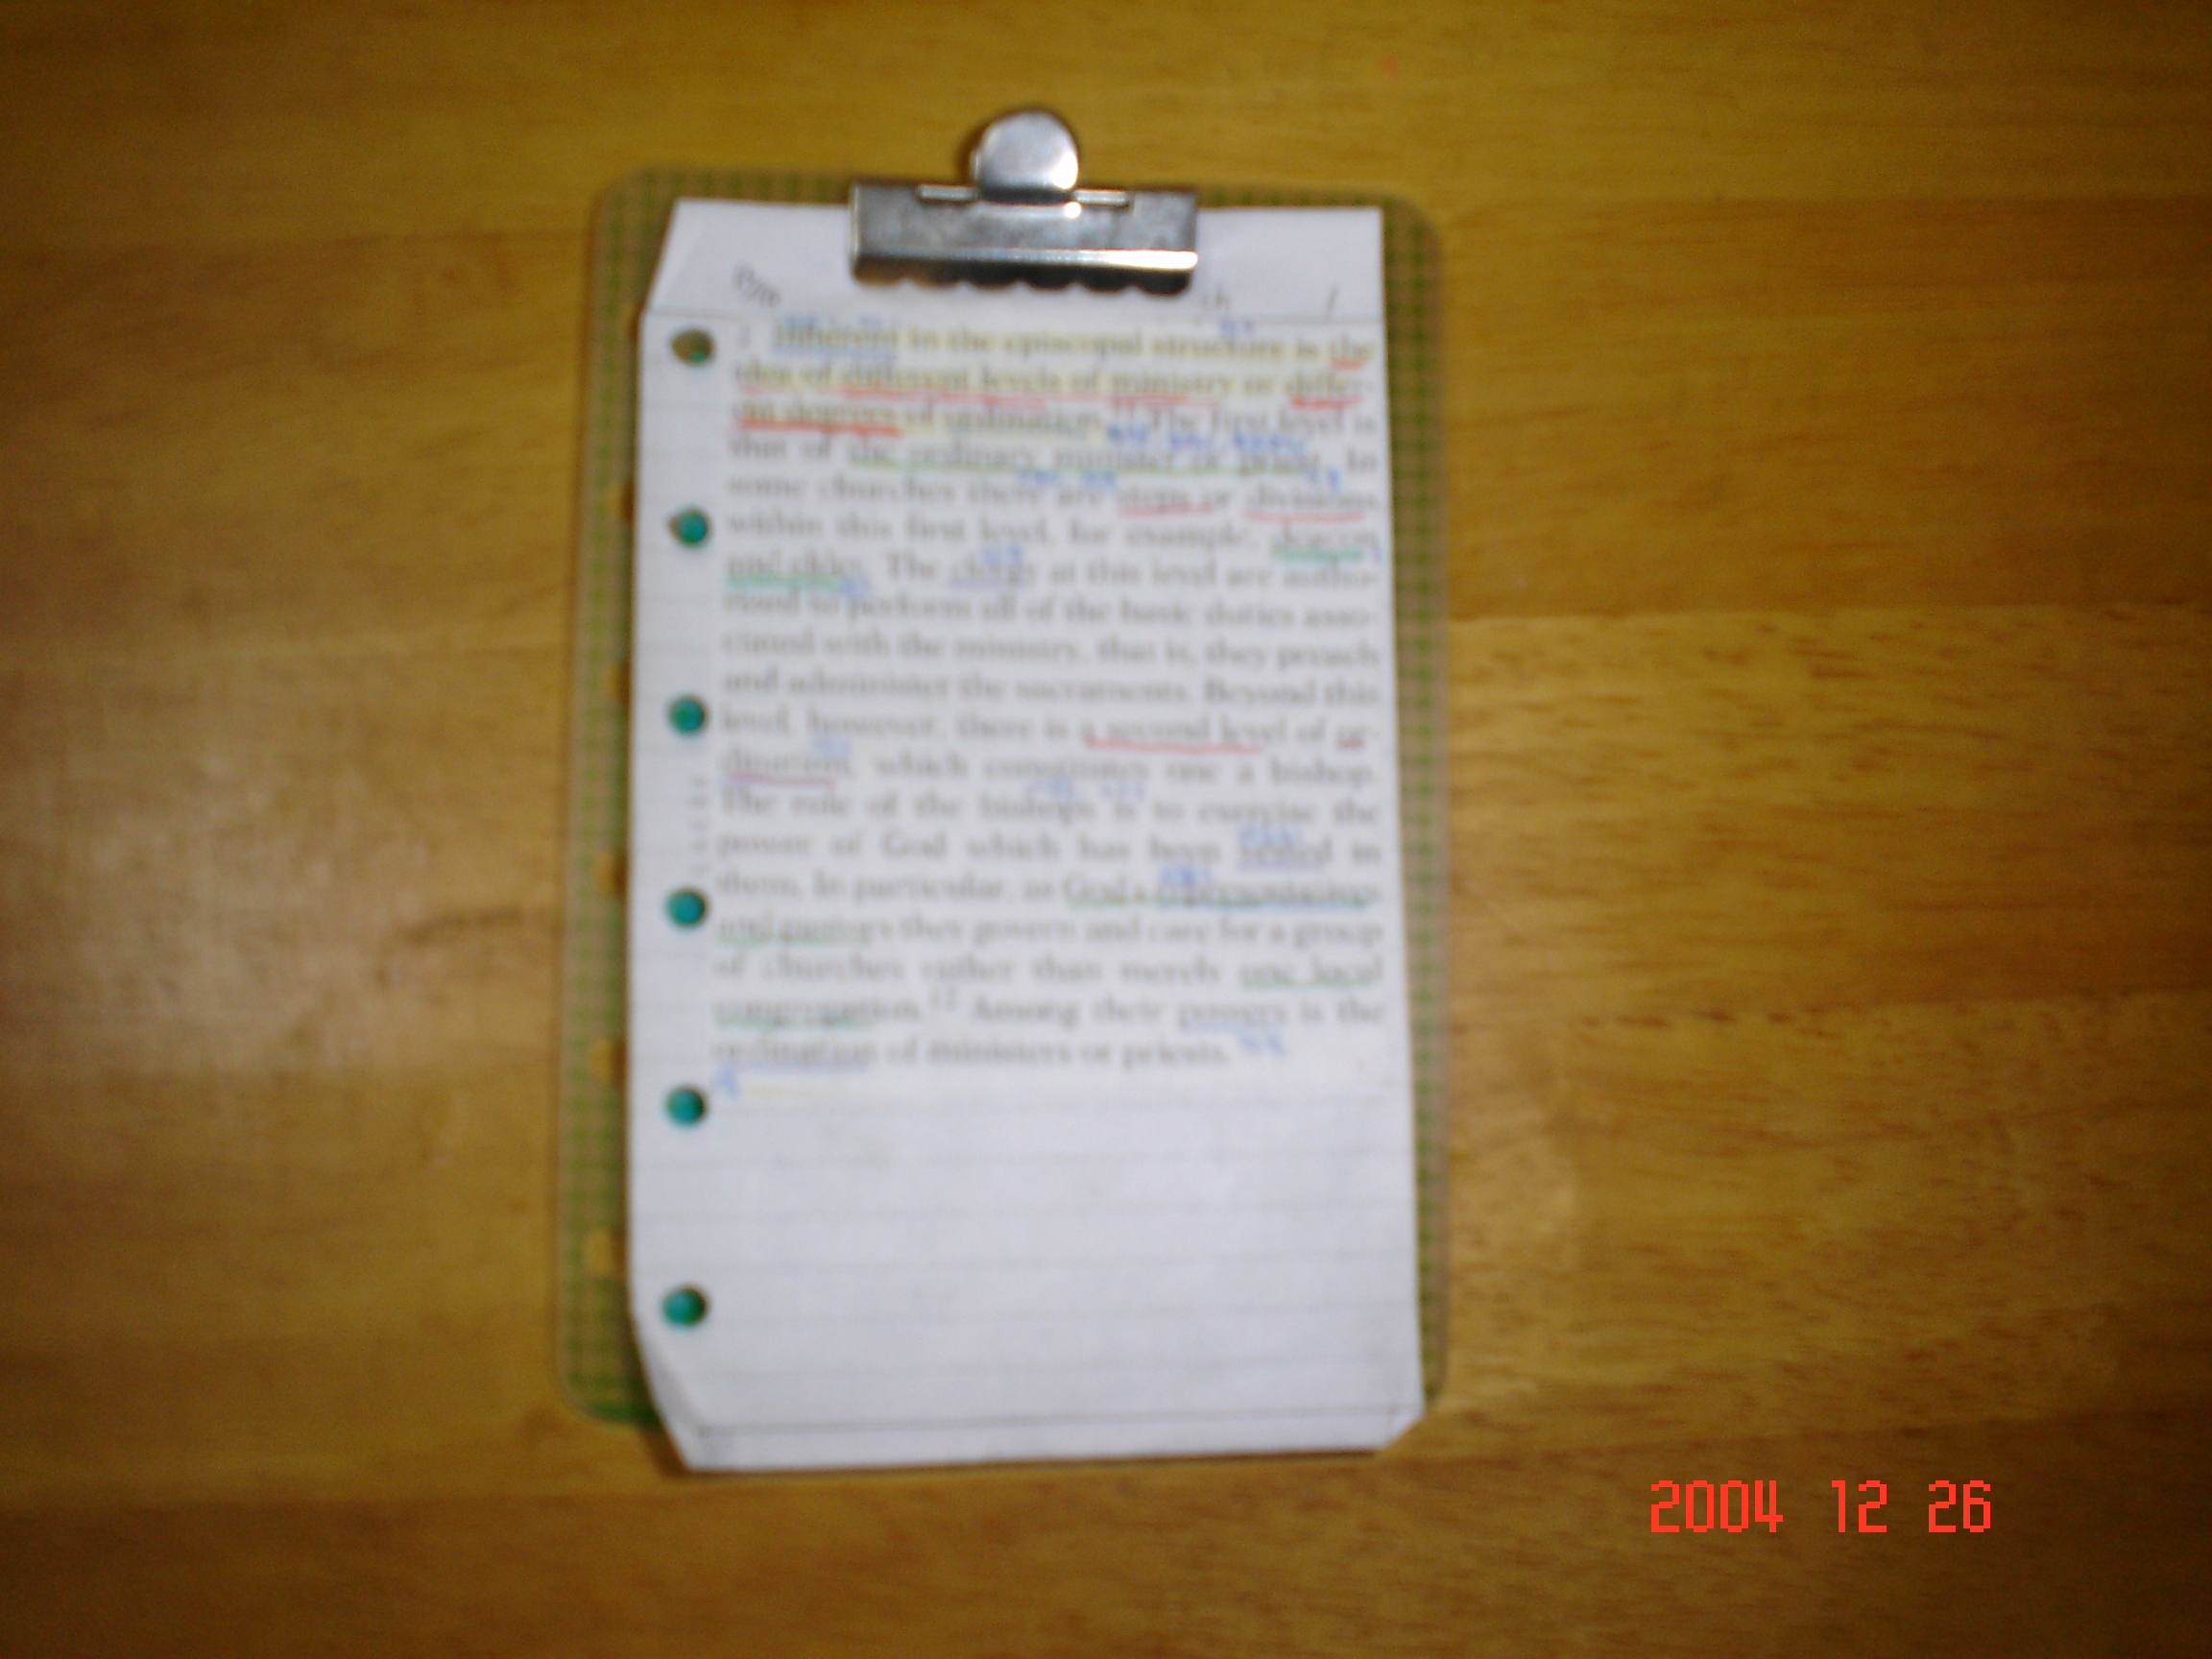 Inherent in the episcopal structure is the
idea of different levels of ministry or differ-
ent degrees of ordination.¹¹ The first level is
that of the ordinary minister or priest. In
some churches there are steps or divisions
within this first level, for example, deacon
and elder. The clergy at this level are autho-
rized to perform all of the basic duties asso-
ciated with the ministry, that is, they preach
and administer the sacraments. Beyond this
level, however, there is a second level of or-
dination, which constitutes one a bishop.
The role of the bishops is to exercise the
power of God which has been vested in
them. In particular, as God's representatives
and pastors they govern and care for a group
of churches rather than merely one local
congregation.¹² Among their powers is the
ordination of ministers or priests.
2004 12 26